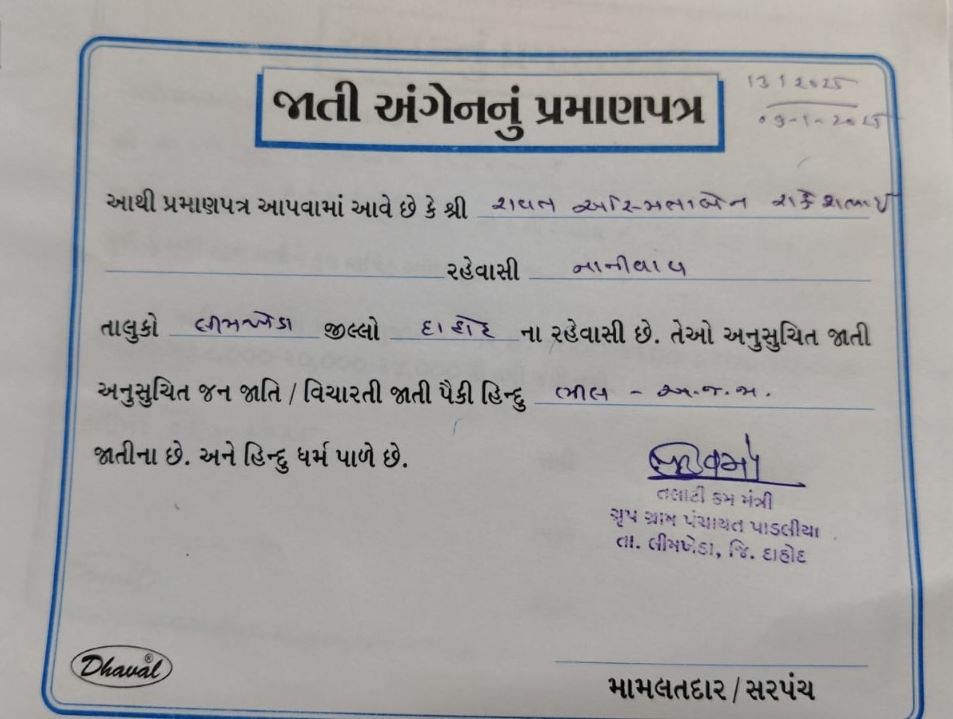 જાતી અંગેનનું પ્રમાણપત્ર
13 1 2025
09-1-2025
આથી પ્રમાણપત્ર આપવામાં આવે છે કે શ્રી રાવત અસ્મિતાબેન રાકેશભાઈ
રહેવાસી નાનીવાવ
તાલુકો લીમખેડા જીલ્લો દાહોદ ના રહેવાસી છે. તેઓ અનુસુચિત જાતી
અનુસુચિત જન જાતિ / વિચારતી જાતી પૈકી હિન્દુ ભીલ - અ.જ.જા.
જાતીના છે. અને હિન્દુ ધર્મ પાળે છે.
તલાટી કમ મંત્રી
ગૃપ ગ્રામ પંચાયત પાડલીયા
તા. લીમખેડા, જિ. દાહોદ
Dhaval®
મામલતદાર / સરપંચ